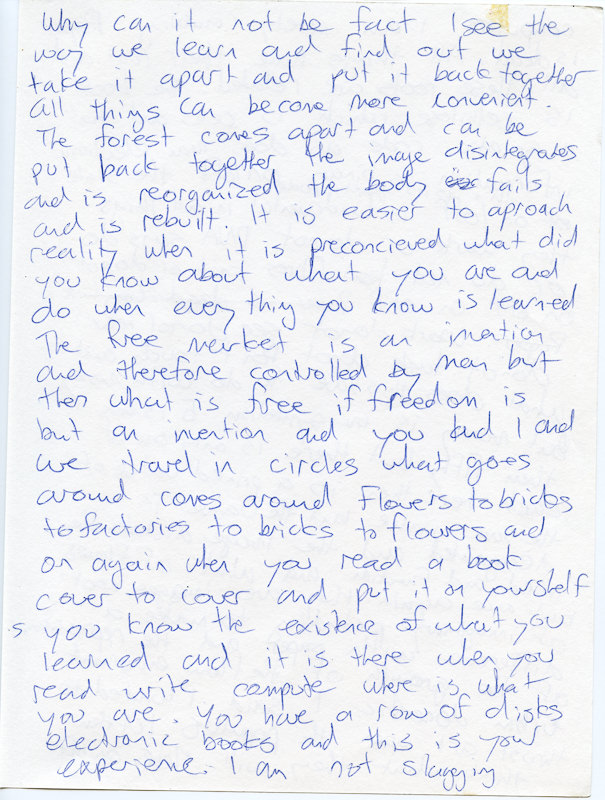 Why can it not be fact I see the
way we learn and find out we
take it apart and put it back together
all things can become more convenient.
The forest comes apart and can be
put back together the image disintegrates
and is reorganized the body fails
and is rebuilt. It is easier to aproach
reality when it is preconcieved what did
you know about what you are and
do when every thing you know is learned
The free market is an invention
and therefore controlled by man but
then what is free if freedom is
but an invention and you and I and
we travel in circles what goes
around comes around Flowers to bricks
to factories to bricks to flowers and
on again when you read a book
cover to cover and put it on your shelf
s you know the existence of what you
learned and it is there when you
read write compute where is what
you are. You have a row of disks
electronic books and this is your
experience. I am not slagging